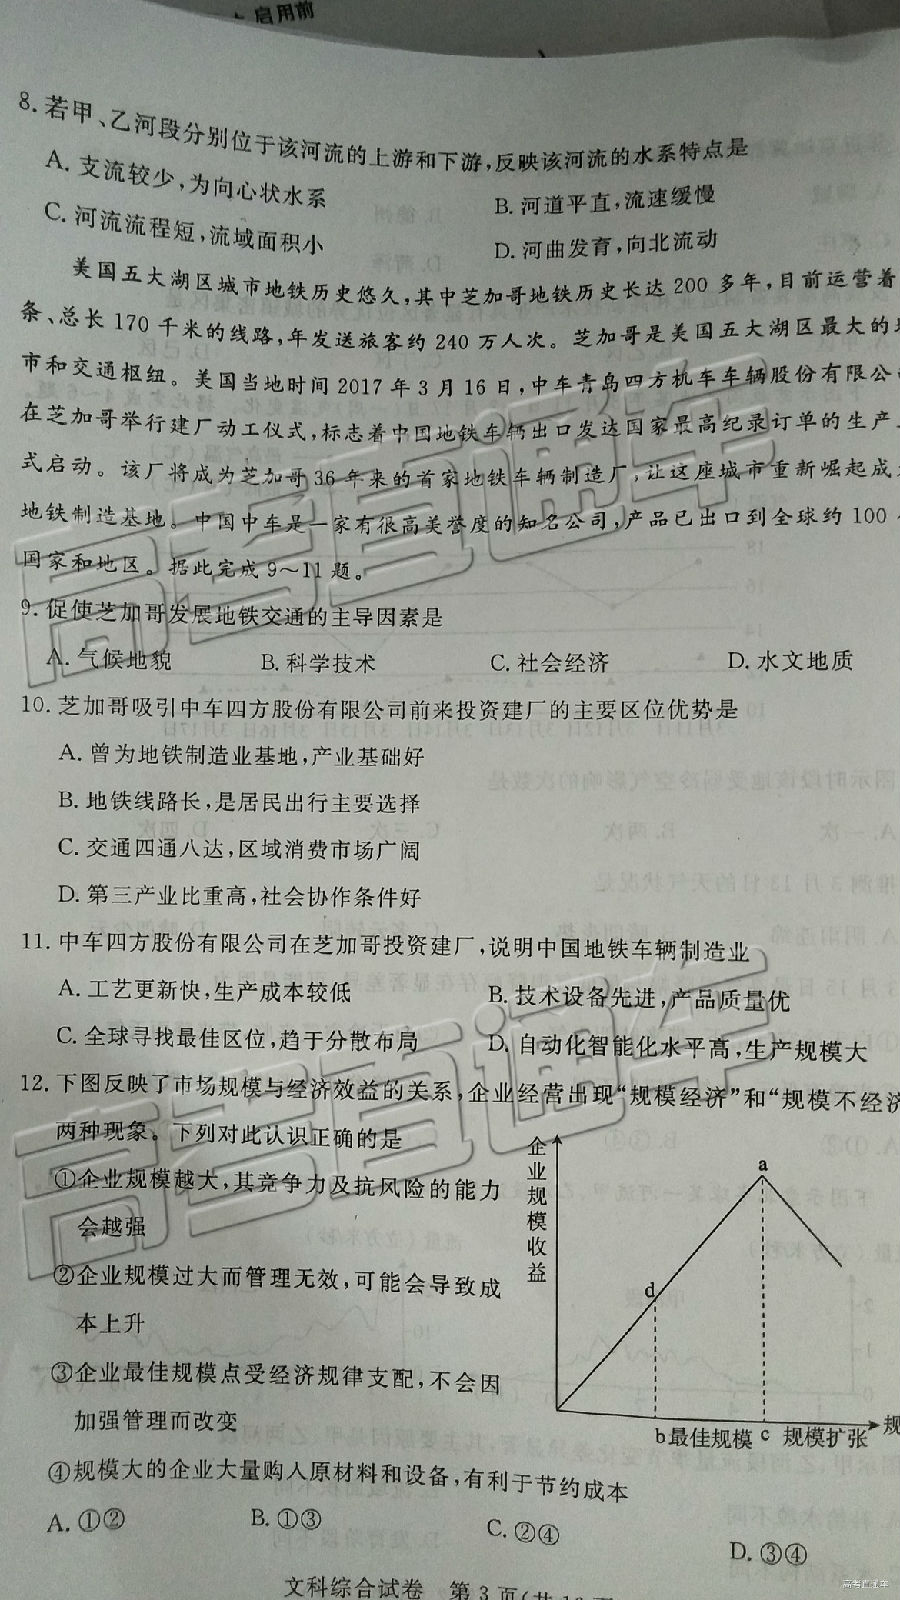 启用前
8. 若甲、乙河段分别位于该河流的上游和下游,反映该河流的水系特点是
A. 支流较少,为向心状水系
B. 河道平直,流速缓慢
C. 河流流程短,流域面积小
D. 河曲发育,向北流动
美国五大湖区城市地铁历史悠久,其中芝加哥地铁历史长达 200 多年,目前运营着
条、总长 170 千米的线路,年发送旅客约 240 万人次。芝加哥是美国五大湖区最大的
市和交通枢纽。美国当地时间 2017 年 3 月 16 日,中车青岛四方机车车辆股份有限公
在芝加哥举行建厂动工仪式,标志着中国地铁车辆出口发达国家最高纪录订单的生产
式启动。该厂将成为芝加哥 36 年来的首家地铁车辆制造厂,让这座城市重新崛起成
地铁制造基地。中国中车是一家有很高美誉度的知名公司,产品已出口到全球约 100
国家和地区。据此完成 9～11 题。
9. 促使芝加哥发展地铁交通的主导因素是
A. 气候地貌
B. 科学技术
C. 社会经济
D. 水文地质
10. 芝加哥吸引中车四方股份有限公司前来投资建厂的主要区位优势是
A. 曾为地铁制造业基地,产业基础好
B. 地铁线路长,是居民出行主要选择
C. 交通四通八达,区域消费市场广阔
D. 第三产业比重高,社会协作条件好
11. 中车四方股份有限公司在芝加哥投资建厂,说明中国地铁车辆制造业
A. 工艺更新快,生产成本较低
B. 技术设备先进,产品质量优
C. 全球寻找最佳区位,趋于分散布局
D. 自动化智能化水平高,生产规模大
12. 下图反映了市场规模与经济效益的关系,企业经营出现“规模经济”和“规模不经济
两种现象。下列对此认识正确的是
①企业规模越大,其竞争力及抗风险的能力
会越强
②企业规模过大而管理无效,可能会导致成
本上升
③企业最佳规模点受经济规律支配,不会因
加强管理而改变
④规模大的企业大量购人原材料和设备,有利于节约成本
企业规模收益
a
d
b最佳规模 c 规模扩张 规
A. ①②
B. ①③
C. ②④
D. ③④
文科综合试卷 第 3 页(共
高考直通车
高考直通车
高考直通车